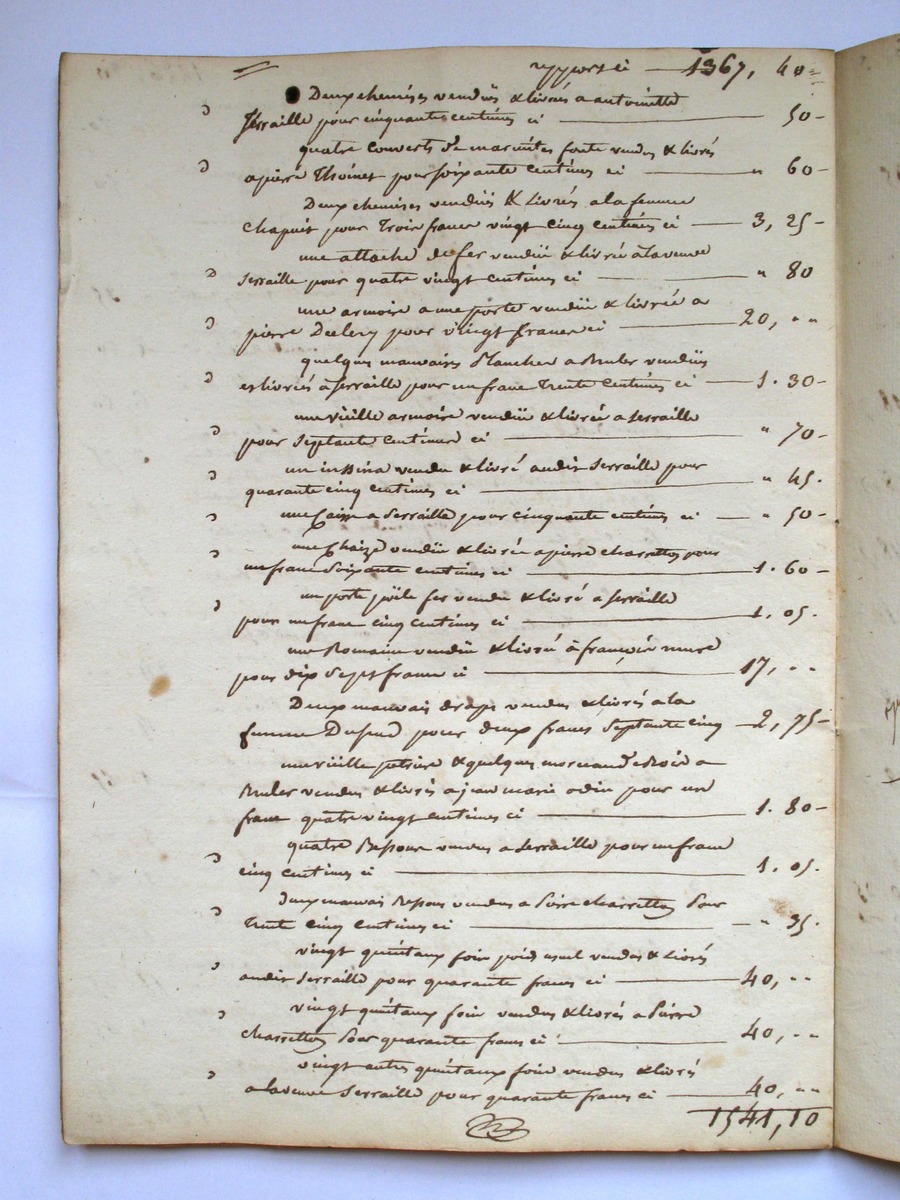 rapport ci 1367, 40
Deux chemises vendües & livrés a antoinette
Serraille pour cinquante centimes ci 50
quatre couverts de marmites fonte vendus & livrés
a pierre Thoinet pour soixante centimes ci " 60
Deux chemises vendüe & Livrés a la femme
Chapuit pour Trois francs vingt cinq centimes ci 3, 25
une attache de fer vendüe & livrée à la veuve
Serraille pour quatre vingt centimes ci " 80
une armoire a une porte vendüe & livrée a
pierre pour vingt francs ci 20, " "
quelques mauvaises Planches a Bruler vendües
et livrées à Serraille pour un franc Trente Centimes ci 1. 30
une vieille armoire vendüe & livrée a Serraille
pour Septante centimes ci " 70
un vendu & livré audit Serraille pour
quarante cinq centimes ci " 45.
une Caisse a Serraille pour cinquante centimes ci " 50
une Chaize vendüe & livrée a pierre charretton pour
un franc Soixante centimes ci 1. 60
un porte poële fer vendu & livré a Serraille
pour un franc cinq centimes ci 1. 05.
une Romaine vendüe & livrée à françois
pour dix Sept francs ci 17, " "
Deux mauvais draps vendus & livrés a la
femme pour deux francs Septante cinq 2, 75
une vieille petrière & quelques morceaux de Bois a
Bruler vendus & livrés a jean marie odin pour un
franc quatre vingt centimes ci 1. 80
quatre vendus a Serraille pour un franc
cinq centimes ci 1. 05.
Deux mauvais vendus a Pierre charretton Pour
Trente cinq centimes ci " 35.
vingt quintaux foin poid usuel vendus & Livrés
audit Serraille pour quarante francs ci 40, " "
vingt quintaux foin vendus & livrés a Pierre
charretton Pour quarante francs ci 40, " "
vingt autres quintaux foin vendus & livrés
a la veuve Serraille pour quarante francs ci 40, " "
1541, 10